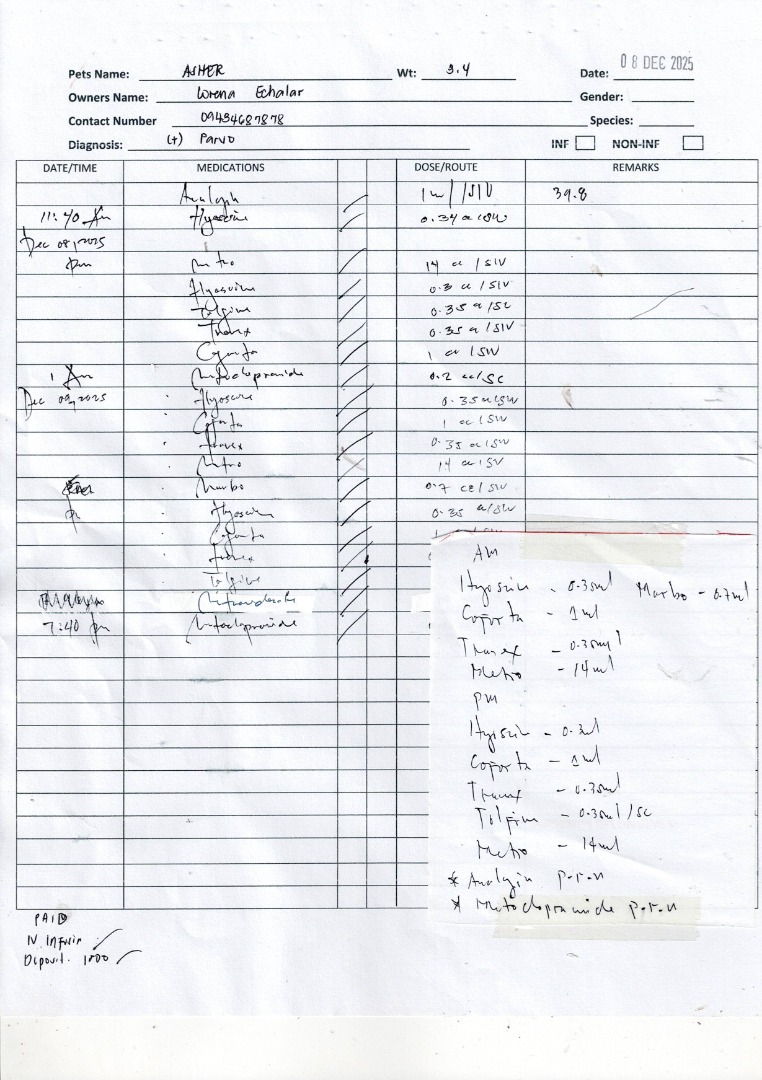 08 DEC 2025
Pets Name: ASHER Wt: 3.4 Date:
Owners Name: Lorena Echalar Gender:
Contact Number 09434687878 Species:
Diagnosis: (+) Parvo INF NON-INF
DATE/TIME MEDICATIONS DOSE/ROUTE REMARKS
Analgin 1 ml /SIV 39.8
11:40 Am Hyoscine 0.34 cc /SIV
Dec 08, 2025
pm Metro 14 cc /SIV
Hyoscine 0.3 cc /SIV
Tolfine 0.35 cc /SC
Tranex 0.35 cc /SIV
Coforta 1 cc /SIV
1 Am Metoclopramide 0.2 cc/SC
Dec 09, 2025 Hyoscine 0.35 cc/SIV
Coforta 1 cc /SIV
Tranex 0.35 cc /SIV
Metro 14 cc /SIV
Marbo 0.7 cc/SIV
pm Hyoscine 0.35 cc/SIV
Coforta
Tranex
Tolfine
7:40 pm Metoclopramide
AM
Hyoscin - 0.35ml Marbo - 0.7ml
Coforta - 1ml
Tranex - 0.35ml
Metro - 14ml
pm
Hyoscin - 0.3ml
Coforta - 1ml
Tranex - 0.35ml
Tolfine - 0.35ml/SC
Metro - 14ml
* Analgin p.r.n
* Metoclopramide p.r.n
PAID
IV Infusion
Deposit. 1800